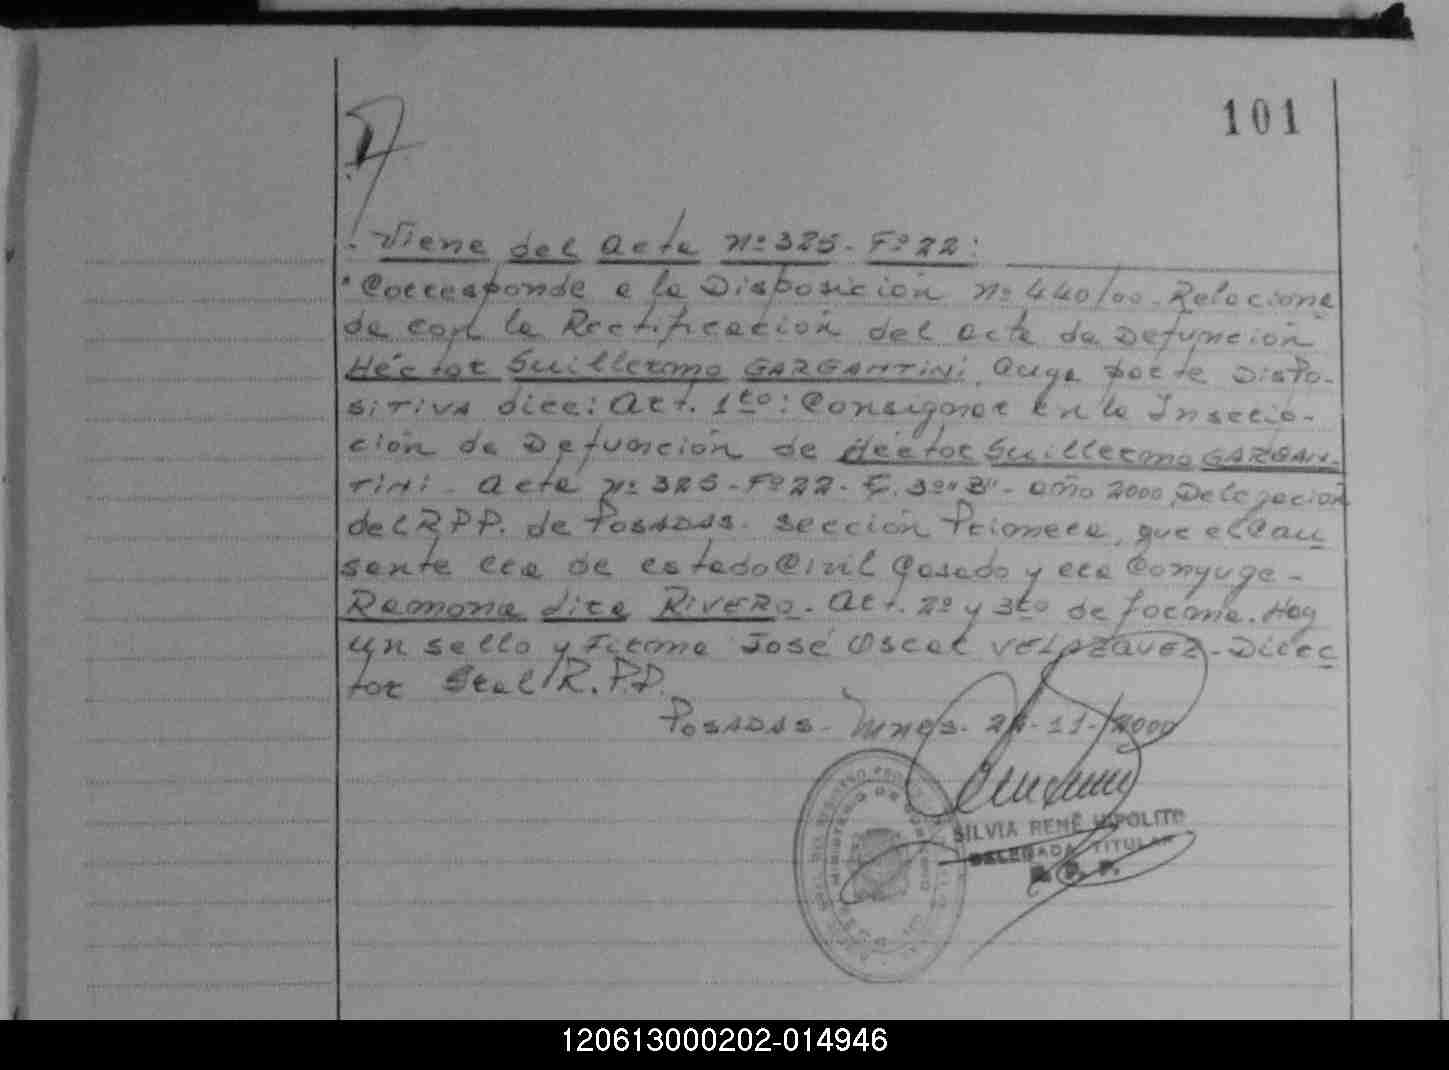 101
Viene del acta Nº 325 - Fº 22:
Corresponde a la Disposición Nº 440/00. Relaciona
da con la Rectificación del acta de Defunción
Héctor Guillermo GARGANTINI, cuya parte DISPO-
SITIVA dice: Art. 1ro: Consignar en la Inscrip-
ción de Defunción de Héctor Guillermo GARGAN-
TINI - acta Nº 325 - Fº 22 - T. 3º "B" - año 2000, Delegación
del R.P.P. de POSADAS - sección Primera, que el Cau
sante era de estado Civil Casado y era Conyuge -
Ramona dita RIVERO - Art. 2º y 3ro de forma. Hay
un sello y Firma José Oscar VELAZQUEZ - Direc
tor Gral R.P.P.
POSADAS - Mnes. -11-2000
MINISTERIO DE GOBIERNO
SILVIA RENÉ HIPOLITO
DELEGADA TITULAR
R. P. P.
120613000202-014946